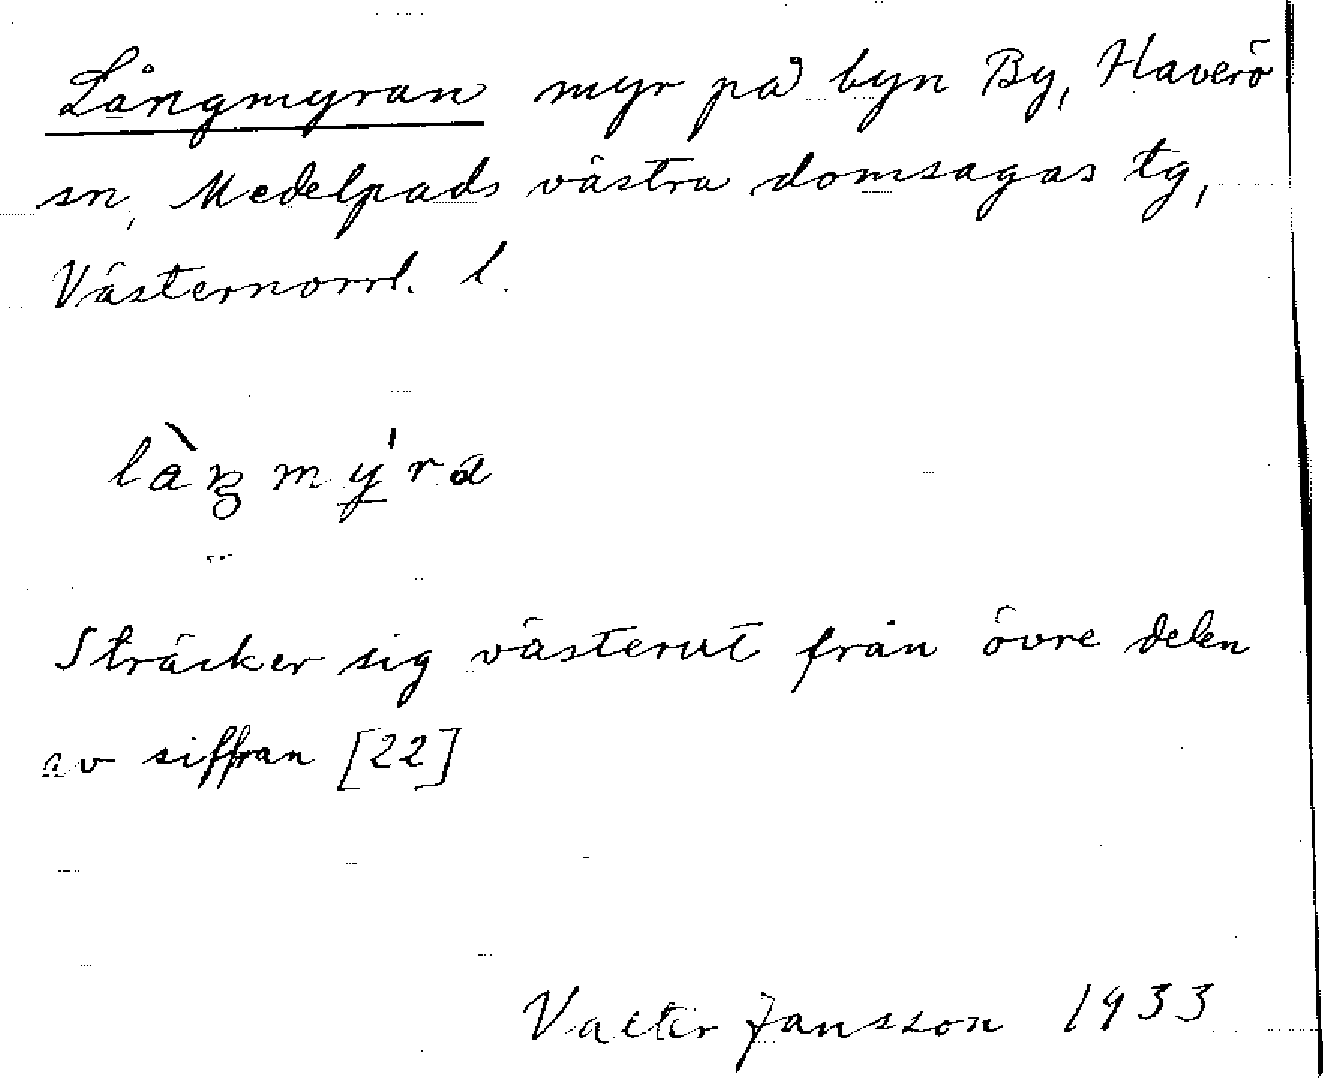 Långmyran myr på byn By, Haverö
sn, Medelpads västra domsagas tg,
Västernorrl. l.
làŋmý̲ra
Sträcker sig västerut från övre delen
av siffran [22]
Valter Jansson 1933